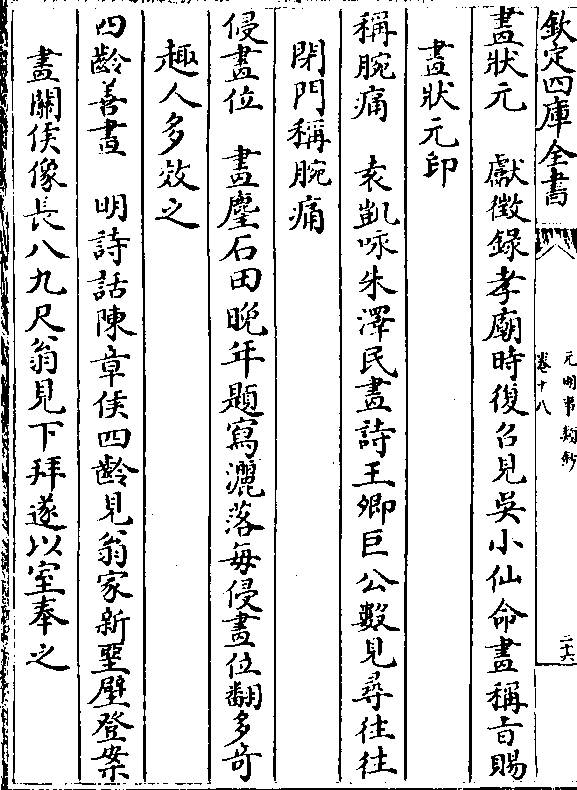 欽定四庫全書
元明事類鈔
卷十八
二十六
畫狀元　獻徵錄孝廟時復召見吳小仙命畫稱旨賜
畫狀元印
稱腕痛　袁凱咏朱澤民畫詩王卿巨公數見尋往往
閉門稱腕痛
侵畫位　畫麈石田晚年題寫灑落每侵畫位翻多奇
趣人多效之
四齡善畫　明詩話陳章侯四齡見翁家新堊壁登案
畫關侯像長八九尺翁見下拜遂以室奉之